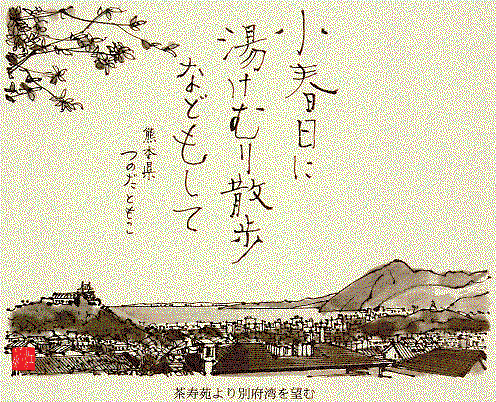 小春日に
湯けむり散歩
などもして
熊本県
つのだともこ
茶寿苑より別府湾を望む